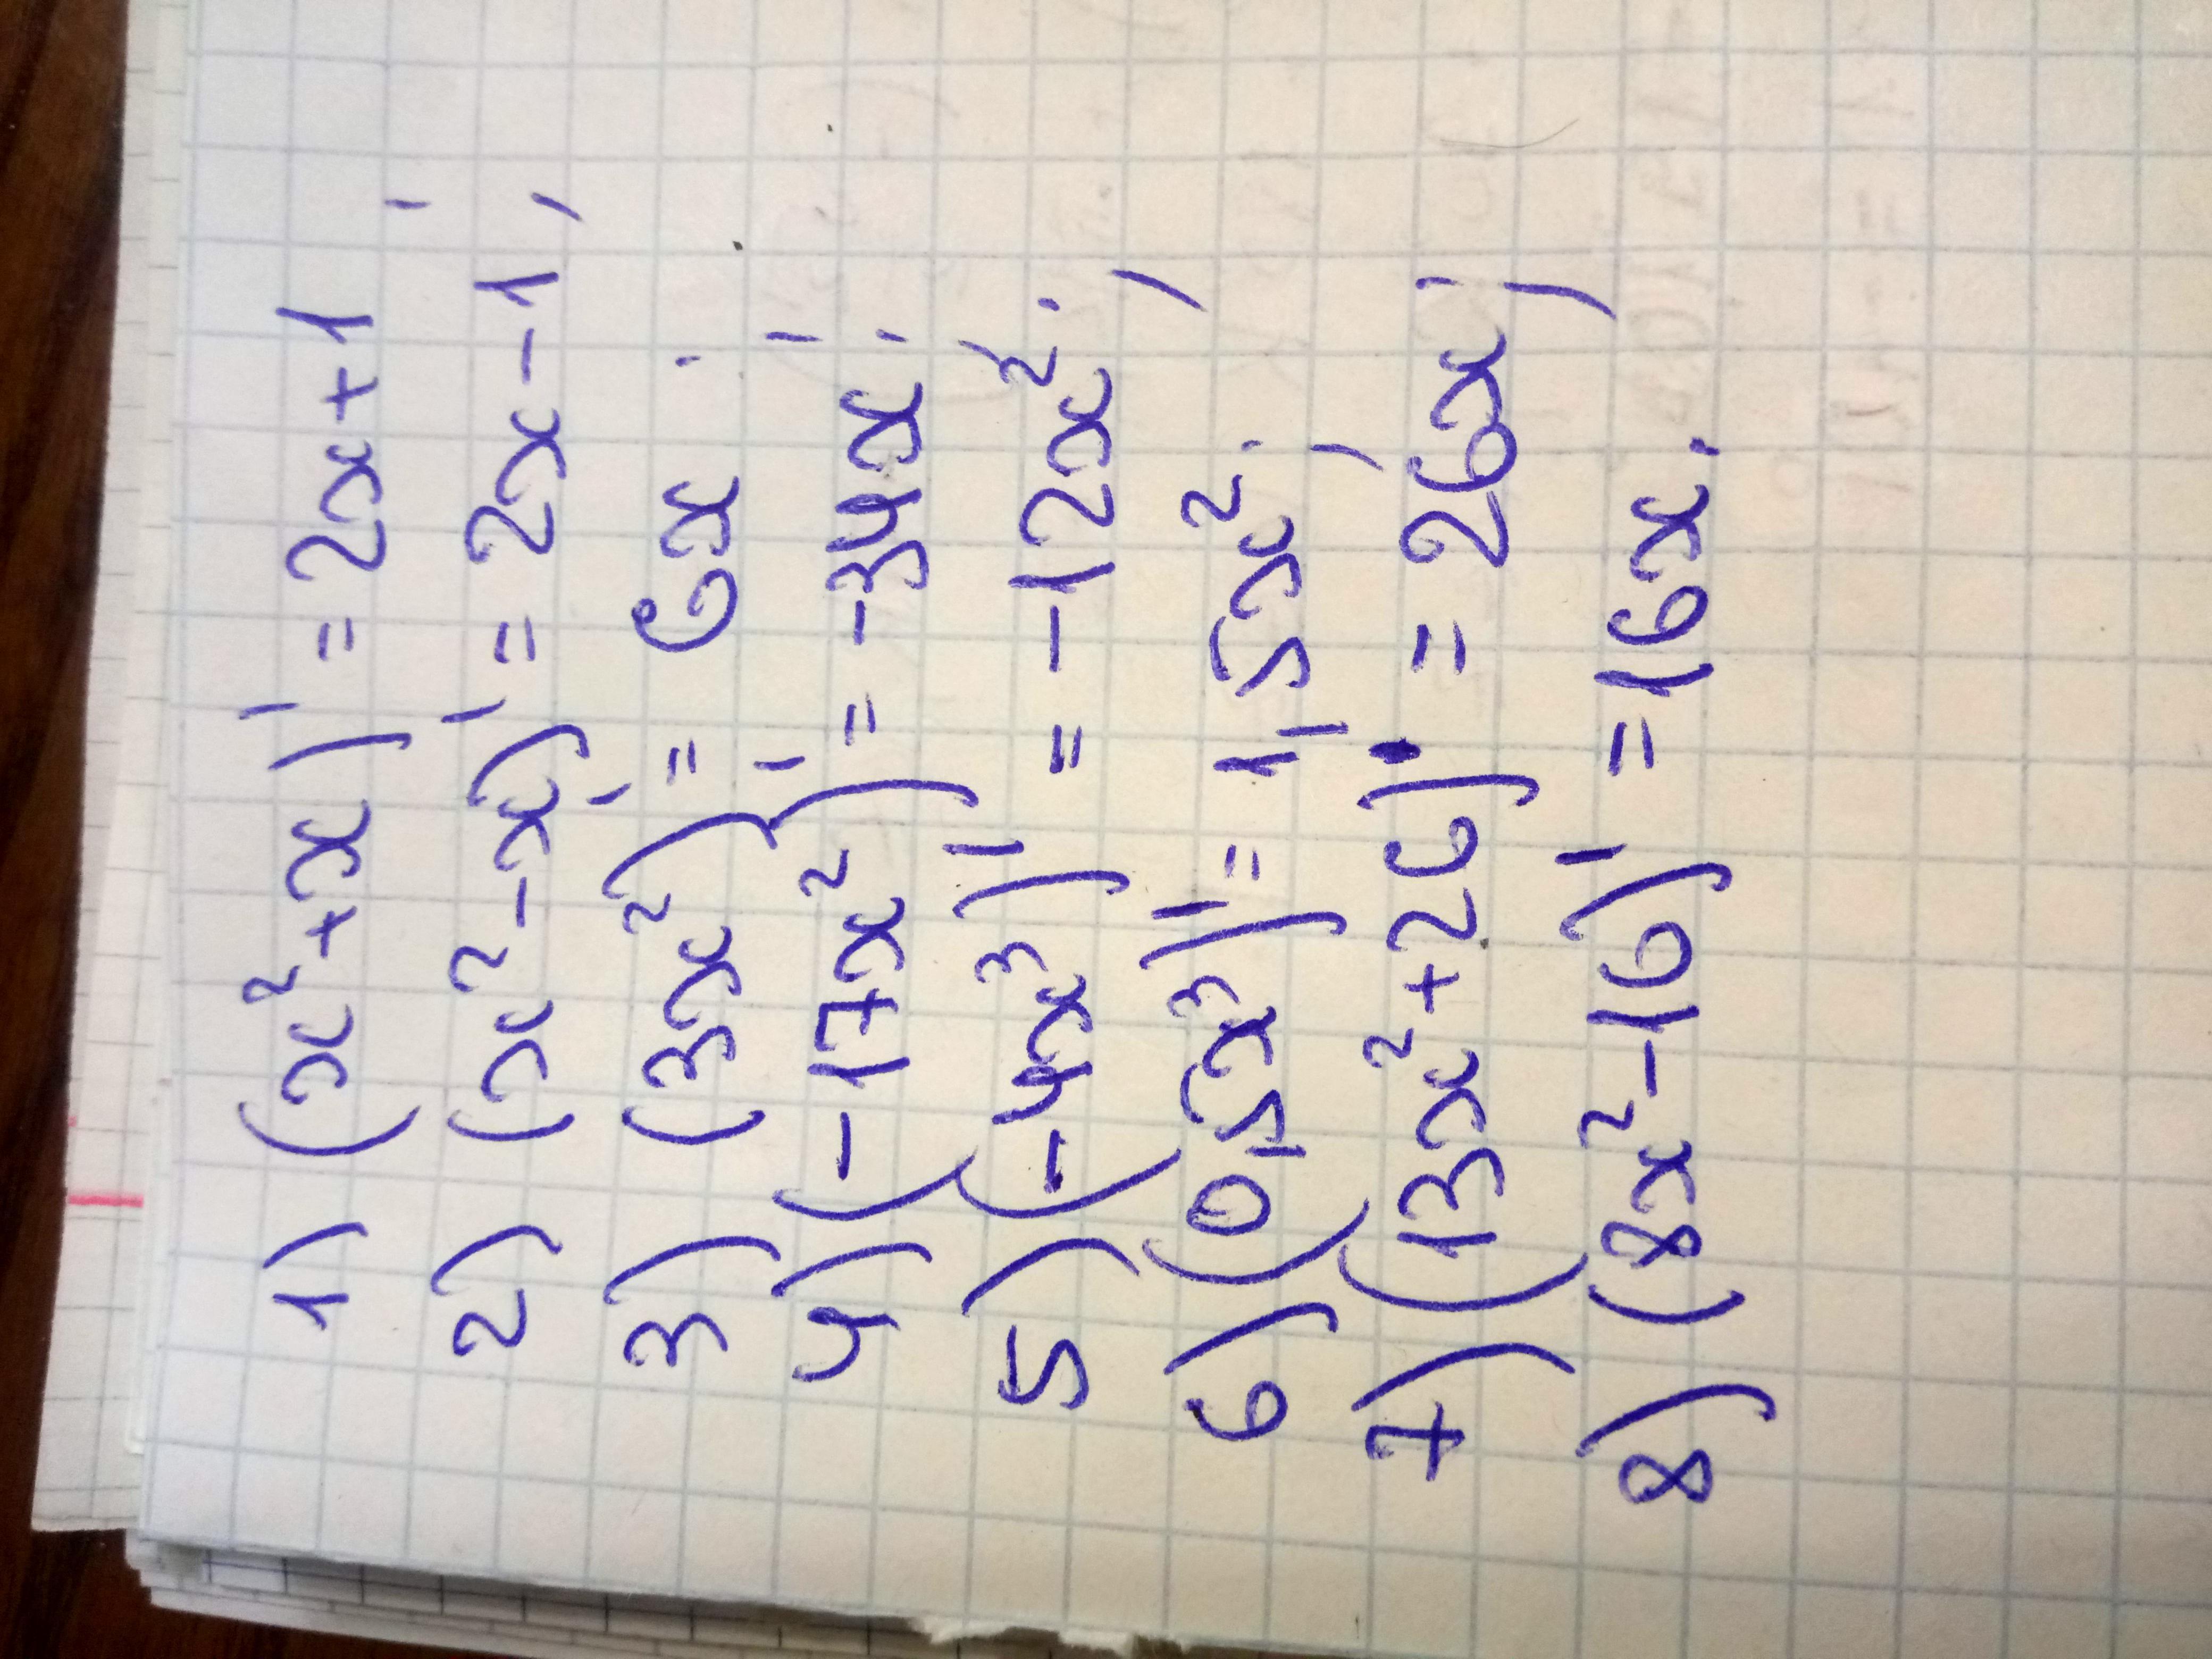 1) (x²+x)' = 2x+1
2) (x²-x)' = 2x-1;
3) (3x²)' = 6x;
4) (-17x²)' = -34x;
5) (-4x³)' = -12x²;
6) (0,5x³)' = 1,5x²;
7) (13x²+26)' = 26x;
8) (8x²-16)' = 16x.